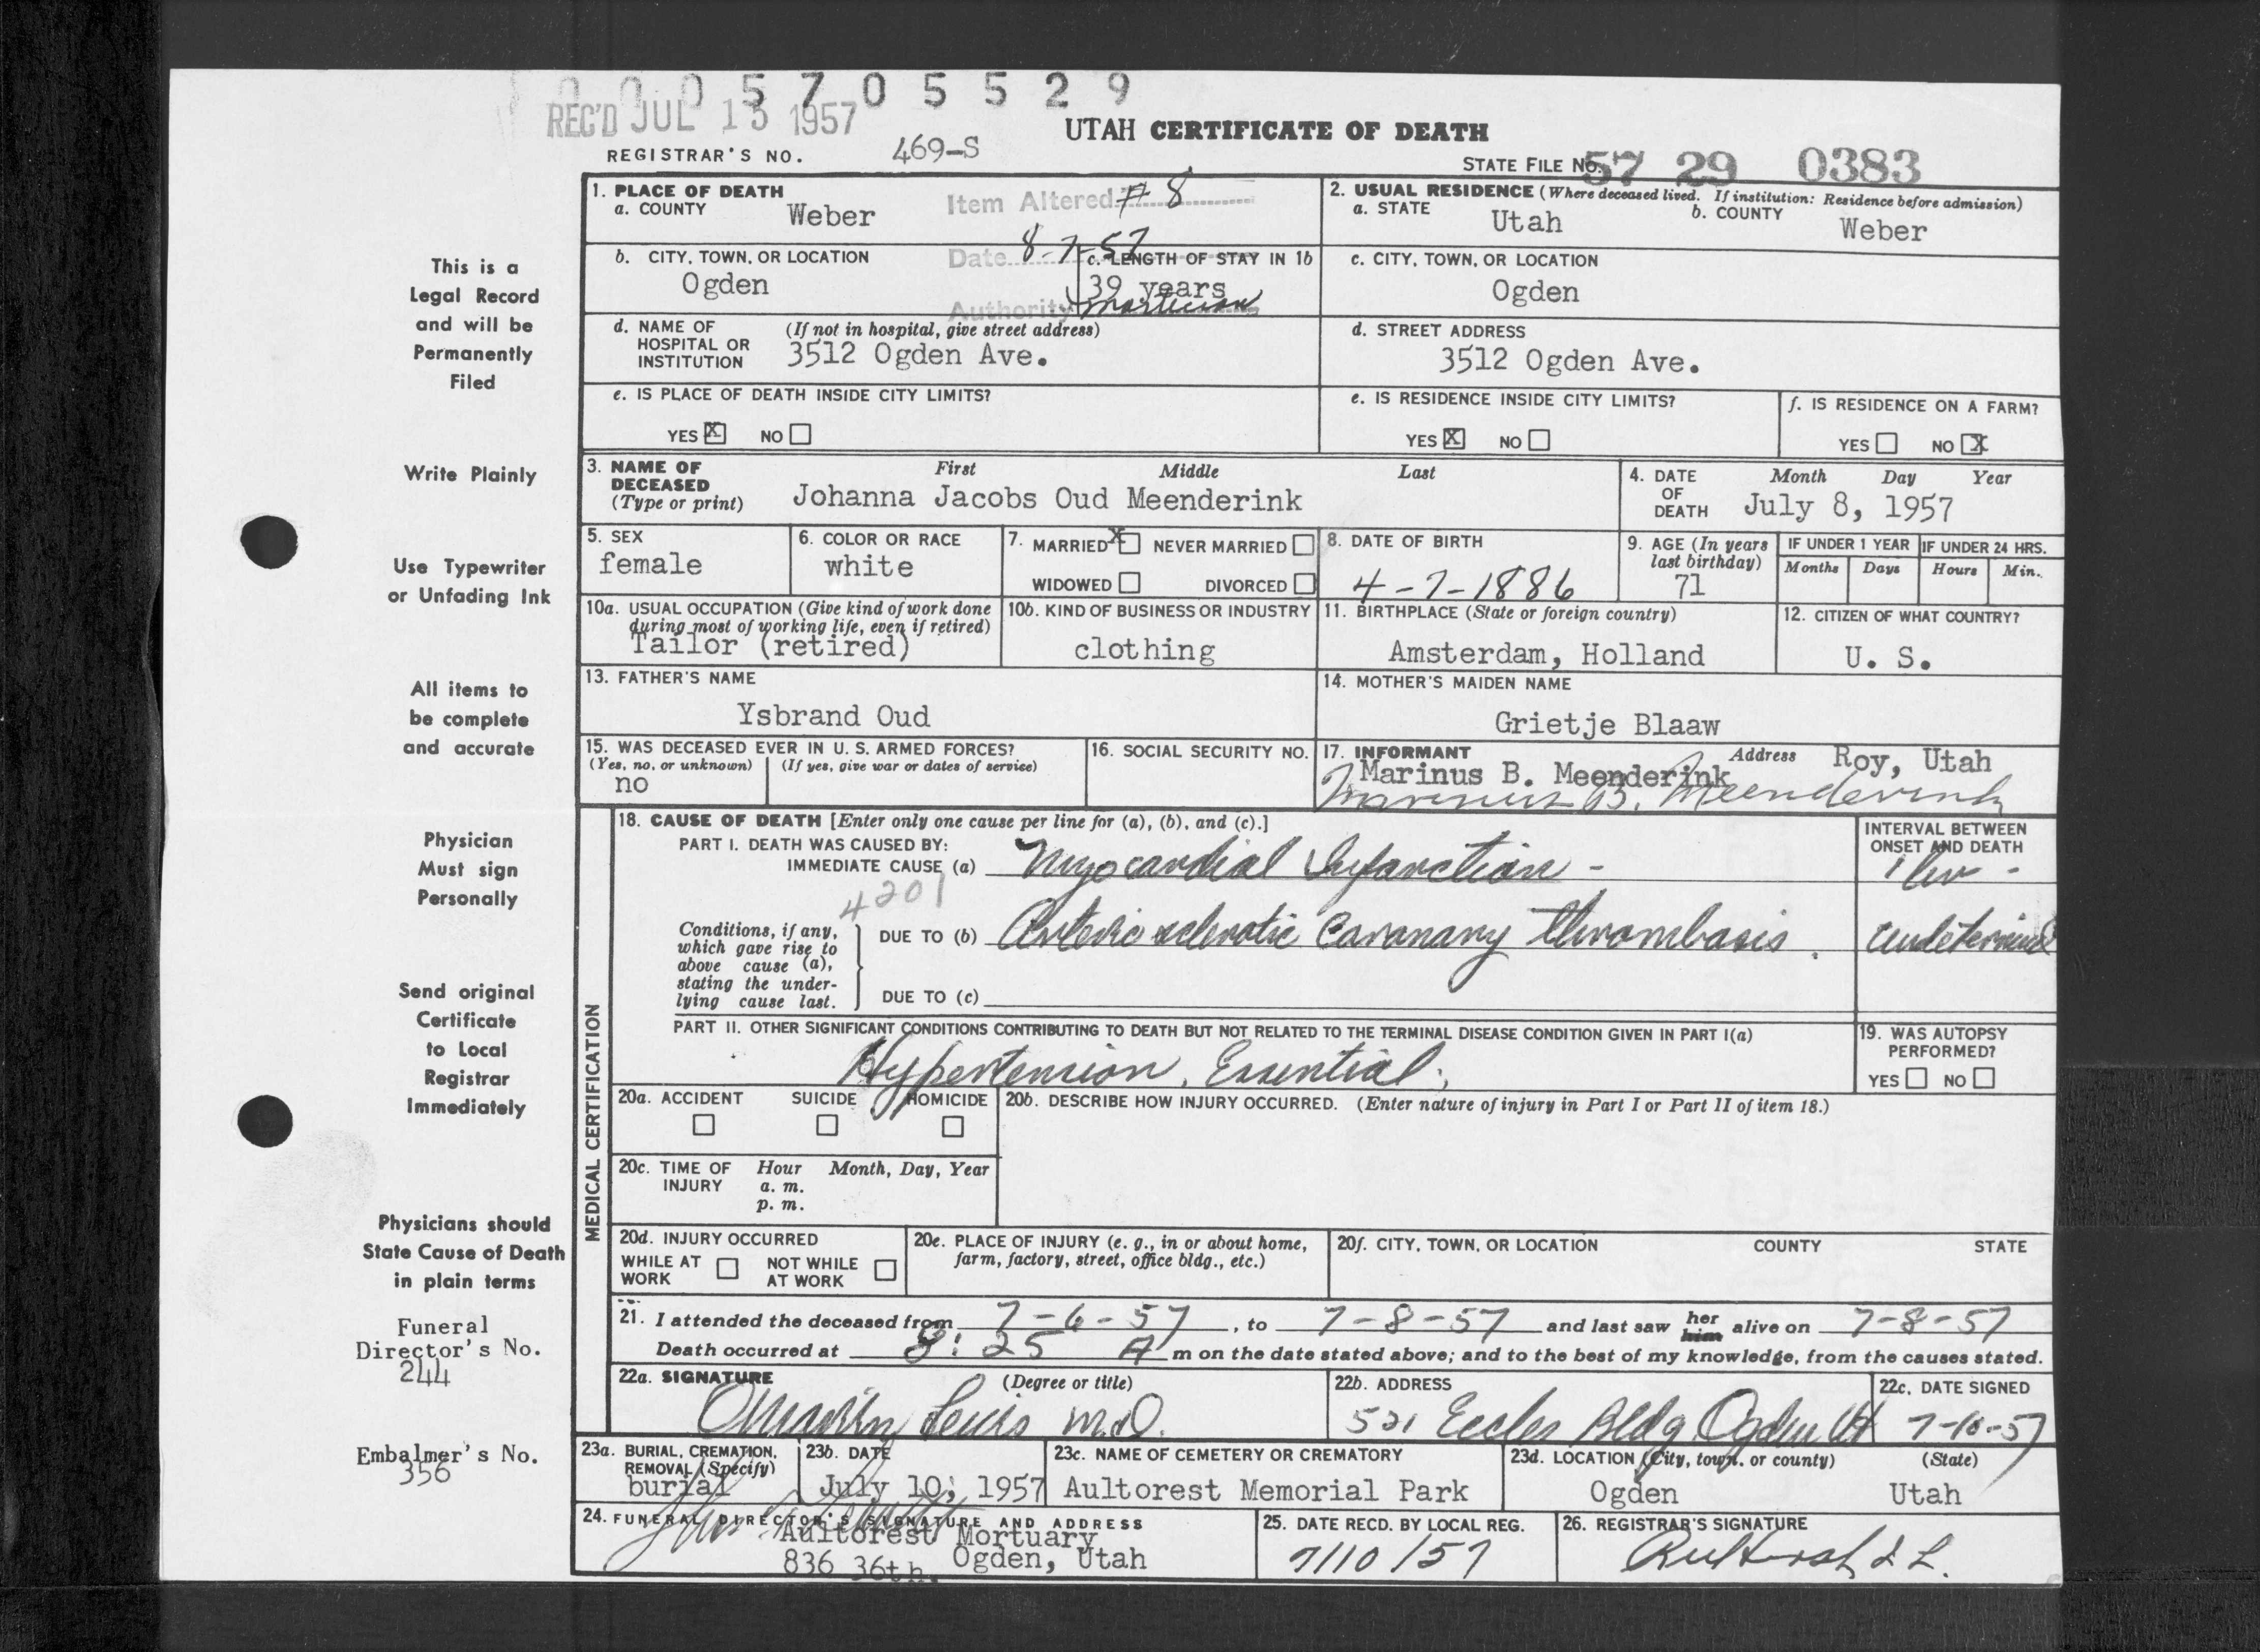 0 0 0 5 7 0 5 5 2 9
REC'D JUL 15 1957
UTAH CERTIFICATE OF DEATH
REGISTRAR'S NO. 469-S
STATE FILE NO. 57 29 0383
1. PLACE OF DEATH
a. COUNTY Weber
Item Altered # 8
2. USUAL RESIDENCE (Where deceased lived. If institution: Residence before admission)
a. STATE Utah b. COUNTY Weber
b. CITY, TOWN, OR LOCATION Ogden
Date 8-7-57
c. LENGTH OF STAY IN 1b 39 years
Authority Mortician
c. CITY, TOWN, OR LOCATION Ogden
d. NAME OF HOSPITAL OR INSTITUTION (If not in hospital, give street address) 3512 Ogden Ave.
d. STREET ADDRESS 3512 Ogden Ave.
e. IS PLACE OF DEATH INSIDE CITY LIMITS?
YES X NO
e. IS RESIDENCE INSIDE CITY LIMITS?
YES X NO
f. IS RESIDENCE ON A FARM?
YES NO X
3. NAME OF DECEASED (Type or print) First Middle Last
Johanna Jacobs Oud Meenderink
4. DATE OF DEATH Month Day Year
July 8, 1957
5. SEX female
6. COLOR OR RACE white
7. MARRIED X NEVER MARRIED
WIDOWED DIVORCED
8. DATE OF BIRTH 4-7-1886
9. AGE (In years last birthday) 71
IF UNDER 1 YEAR Months Days
IF UNDER 24 HRS. Hours Min.
10a. USUAL OCCUPATION (Give kind of work done during most of working life, even if retired)
Tailor (retired)
10b. KIND OF BUSINESS OR INDUSTRY clothing
11. BIRTHPLACE (State or foreign country) Amsterdam, Holland
12. CITIZEN OF WHAT COUNTRY? U. S.
13. FATHER'S NAME Ysbrand Oud
14. MOTHER'S MAIDEN NAME Grietje Blaaw
15. WAS DECEASED EVER IN U. S. ARMED FORCES?
(Yes, no, or unknown) (If yes, give war or dates of service)
no
16. SOCIAL SECURITY NO.
17. INFORMANT Address Roy, Utah
Marinus B. Meenderink
Marinus B. Meenderink
MEDICAL CERTIFICATION
18. CAUSE OF DEATH [Enter only one cause per line for (a), (b), and (c).]
PART I. DEATH WAS CAUSED BY:
IMMEDIATE CAUSE (a) Myocardial Infarction -
INTERVAL BETWEEN ONSET AND DEATH
1 hr -
4201
Conditions, if any, which gave rise to above cause (a), stating the underlying cause last.
DUE TO (b) Arteriosclerotic Coronary Thrombosis. undetermined
DUE TO (c)
PART II. OTHER SIGNIFICANT CONDITIONS CONTRIBUTING TO DEATH BUT NOT RELATED TO THE TERMINAL DISEASE CONDITION GIVEN IN PART I(a)
Hypertension, Essential.
19. WAS AUTOPSY PERFORMED?
YES NO
20a. ACCIDENT SUICIDE HOMICIDE
20b. DESCRIBE HOW INJURY OCCURRED. (Enter nature of injury in Part I or Part II of item 18.)
20c. TIME OF INJURY Hour Month, Day, Year
a. m.
p. m.
20d. INJURY OCCURRED
WHILE AT WORK NOT WHILE AT WORK
20e. PLACE OF INJURY (e. g., in or about home, farm, factory, street, office bldg., etc.)
20f. CITY, TOWN, OR LOCATION COUNTY STATE
21. I attended the deceased from 7-6-57, to 7-8-57 and last saw her him alive on 7-8-57
Death occurred at 8:25 A m on the date stated above; and to the best of my knowledge, from the causes stated.
22a. SIGNATURE (Degree or title)
Lewis M.D.
22b. ADDRESS
521 Eccles Bldg Ogden Ut
22c. DATE SIGNED
7-10-57
23a. BURIAL, CREMATION, REMOVAL (Specify) burial
23b. DATE July 10, 1957
23c. NAME OF CEMETERY OR CREMATORY Aultorest Memorial Park
23d. LOCATION (City, town, or county) (State)
Ogden Utah
24. FUNERAL DIRECTOR'S SIGNATURE AND ADDRESS
Aultorest Mortuary
836 36th. Ogden, Utah
25. DATE RECD. BY LOCAL REG.
7/10/57
26. REGISTRAR'S SIGNATURE
This is a
Legal Record
and will be
Permanently
Filed
Write Plainly
Use Typewriter
or Unfading Ink
All items to
be complete
and accurate
Physician
Must sign
Personally
Send original
Certificate
to Local
Registrar
Immediately
Physicians should
State Cause of Death
in plain terms
Funeral
Director's No.
244
Embalmer's No.
356